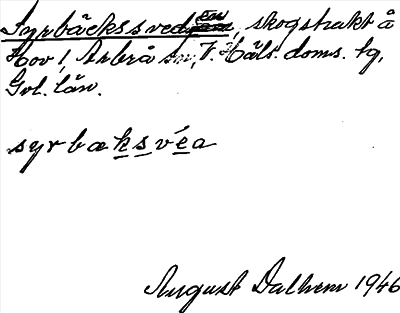 Syrbäckssveden, skogstrakt å
Hov 1, Arbrå sn, V. Häls. doms. tg,
Gvl. län.
syrbæksvéa
August Dalhem 1946